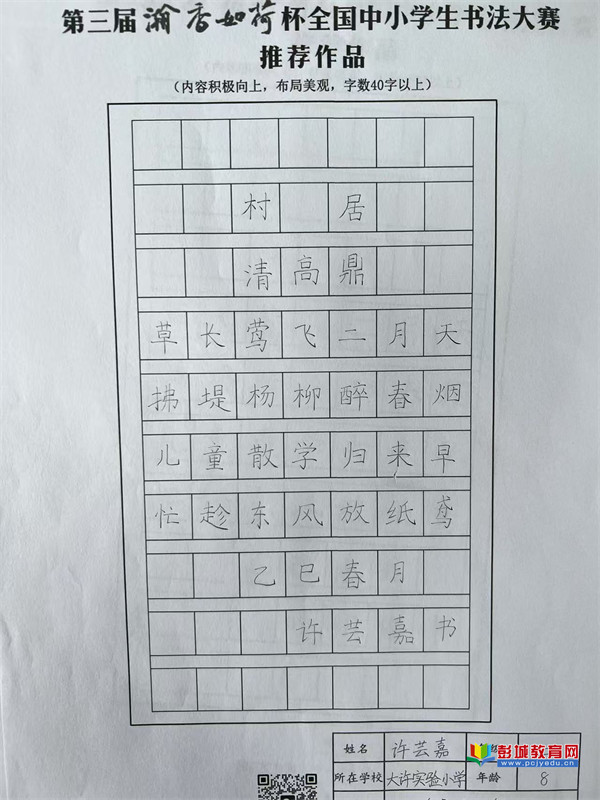 第三届瀚香如荷杯全国中小学生书法大赛
推荐作品
（内容积极向上，布局美观，字数40字以上）
村居
清高鼎
草长莺飞二月天
拂堤杨柳醉春烟
儿童散学归来早
忙趁东风放纸鸢
乙巳春月
许芸嘉书
姓名 许芸嘉
所在学校 大许实验小学 年龄 8
彭城教育网
www.pcjyedu.cn